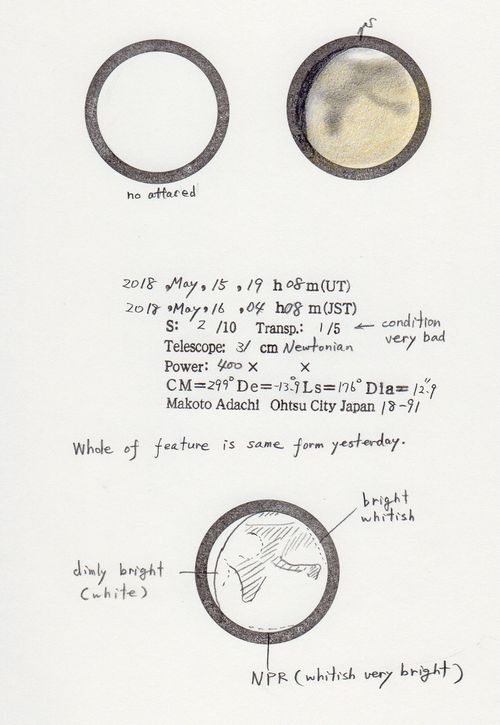 no attaced
2018 , May , 15 , 19 h 08 m (UT)
2018 , May , 16 , 04 h 08 m (JST)
S: 2 /10 Transp.: 1/5 ← condition very bad
Telescope: 31 cm Newtonian
Power: 400 × ×
CM=299° De=-13.9° Ls=176° Dia=12.″9
Makoto Adachi Ohtsu City Japan 18-91
Whole of feature is same form yesterday.
bright
whitish
dimly bright
(white)
NPR (whitish very bright)